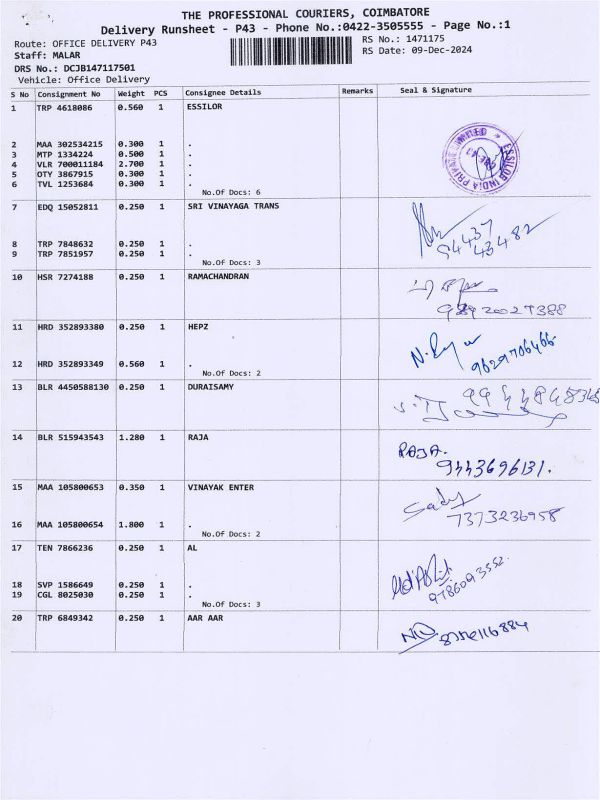 THE PROFESSIONAL COURIERS, COIMBATORE
Delivery Runsheet - P43 - Phone No.:0422-3505555 - Page No.:1
Route: OFFICE DELIVERY P43
RS No.: 1471175
Staff: MALAR
RS Date: 09-Dec-2024
DRS No.: DCJB147117501
Vehicle: Office Delivery
S No Consignment No Weight PCS Consignee Details Remarks Seal & Signature
1 TRP 4618086 0.560 1 ESSILOR
ESSILOR INDIA PRIVATE LIMITED
2 MAA 302534215 0.300 1 .
3 MTP 1334224 0.500 1 .
4 VLR 700011184 2.700 1 .
5 OTY 3867915 0.300 1 .
6 TVL 1253684 0.300 1 .
No.Of Docs: 6
7 EDQ 15052811 0.250 1 SRI VINAYAGA TRANS
94437
43482
8 TRP 7848632 0.250 1 .
9 TRP 7851957 0.250 1 .
No.Of Docs: 3
10 HSR 7274188 0.250 1 RAMACHANDRAN
11 HRD 352893380 0.250 1 HEPZ
9629706466
12 HRD 352893349 0.560 1 .
No.Of Docs: 2
13 BLR 4450588130 0.250 1 DURAISAMY
14 BLR 515943543 1.280 1 RAJA
RAJA.
9443696131.
15 MAA 105800653 0.350 1 VINAYAK ENTER
7373236958
16 MAA 105800654 1.800 1 .
No.Of Docs: 2
17 TEN 7866236 0.250 1 AL
9786093552
18 SVP 1586649 0.250 1 .
19 CGL 8025030 0.250 1 .
No.Of Docs: 3
20 TRP 6849342 0.250 1 AAR AAR